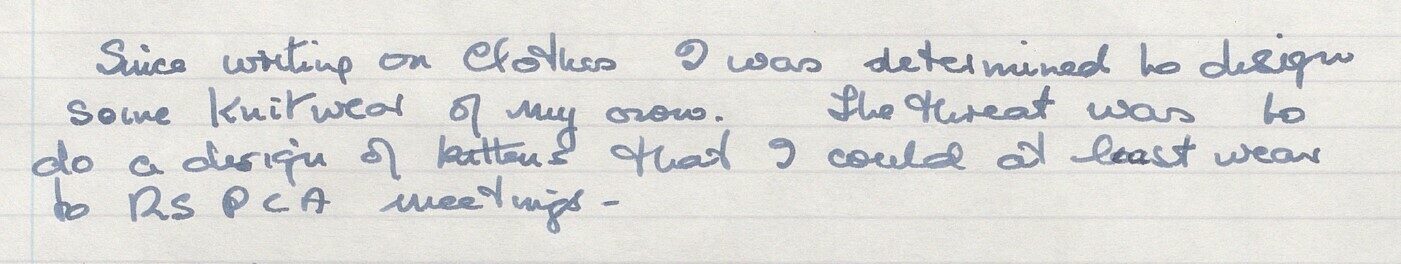 Since writing on Clothes I was determined to design
some Knitwear of my own. The threat was to
do a design of kittens that I could at least wear
to RSPCA meetings -